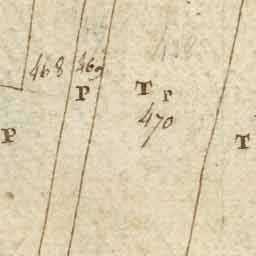 468 469
P T P
470
P T